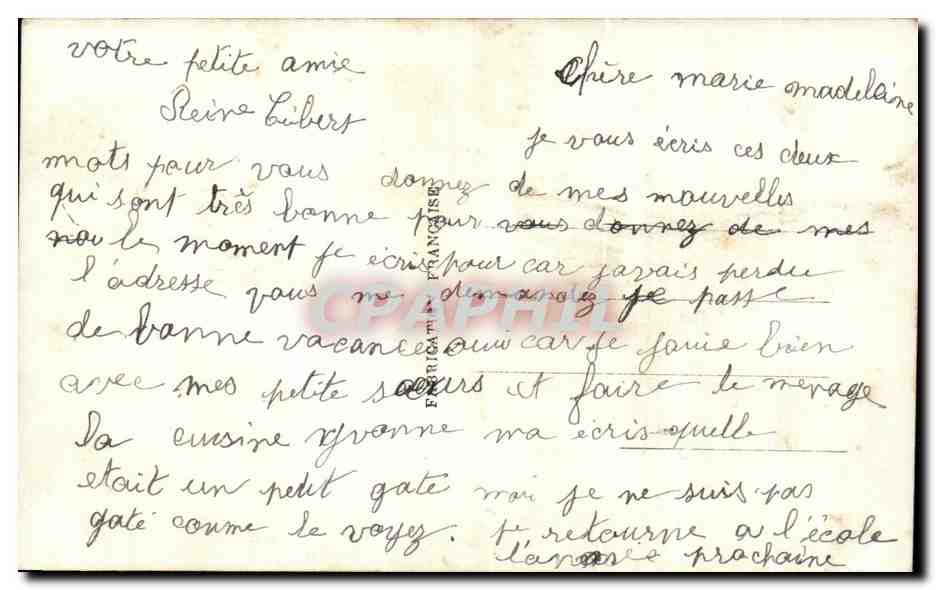 votre petite amie
Reine Cubert
Chère marie madeleine
je vous écris ces deux
mots pour vous donnez de mes mouvelles
qui sont très bonne pour vous donnez de mes
nou le moment je écris pour car javais perdu
l'adresse vous me demandez je passe
de bonne vacance oui car je joue bien
avec mes petite sœurs et faire le menage
la cuisine yvonne ma écris quelle
etait un petit gate moi je ne suis pas
gaté coume le voyez. je retourne a l'école
l'année prochaine
FABRICATION FRANÇAISE
CPAPHIL